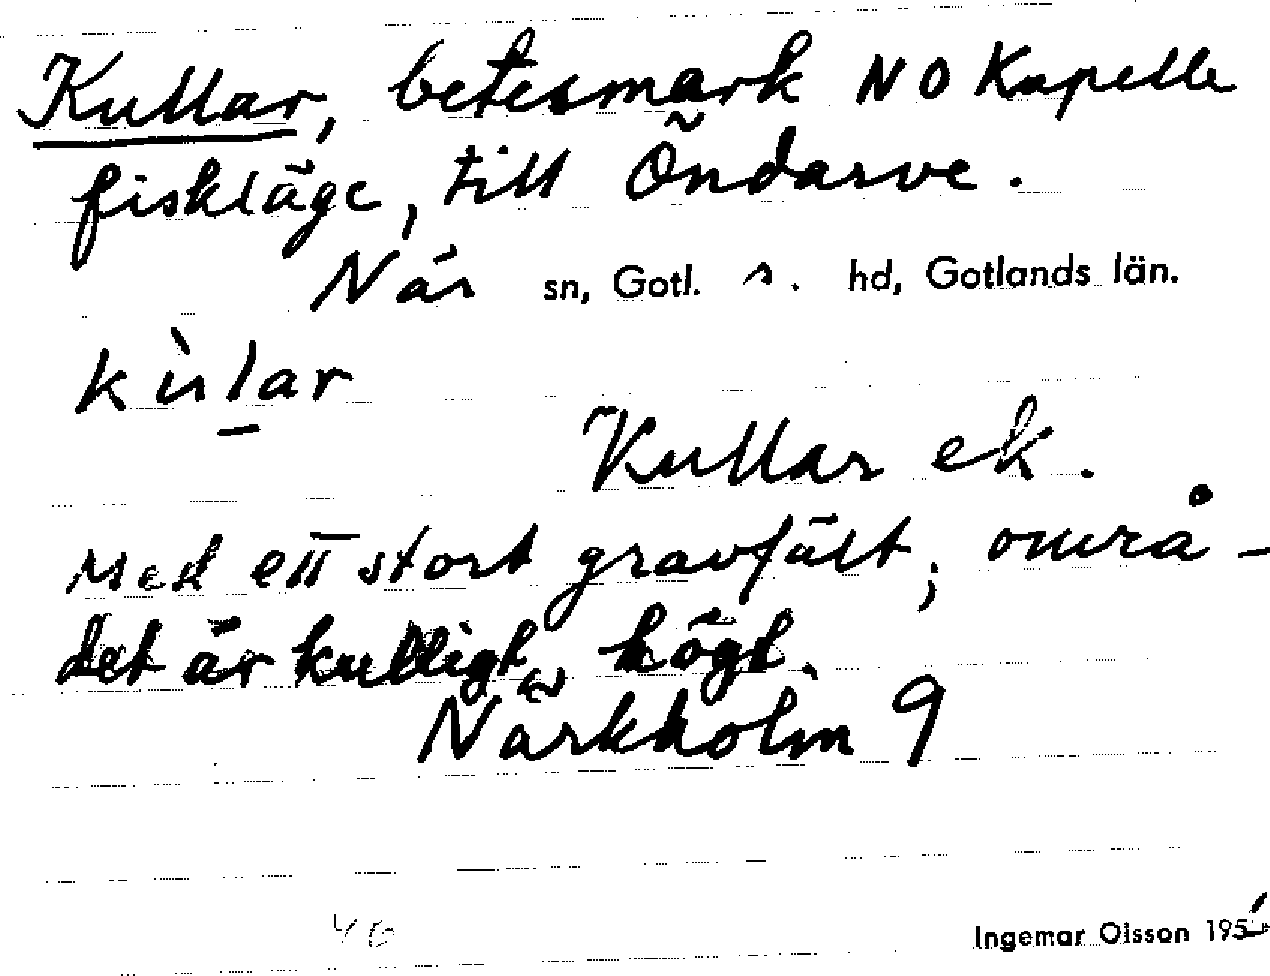 Kullar, betesmark NO Kapelle
fiskläge, till Öndarve.
När sn, Gotl. s. hd, Gotlands län.
kùlar
Kullar ek.
Med ett stort gravfält; områ-
det är kulligt, högt.
Närkholm 9
Ingemar Olsson 195